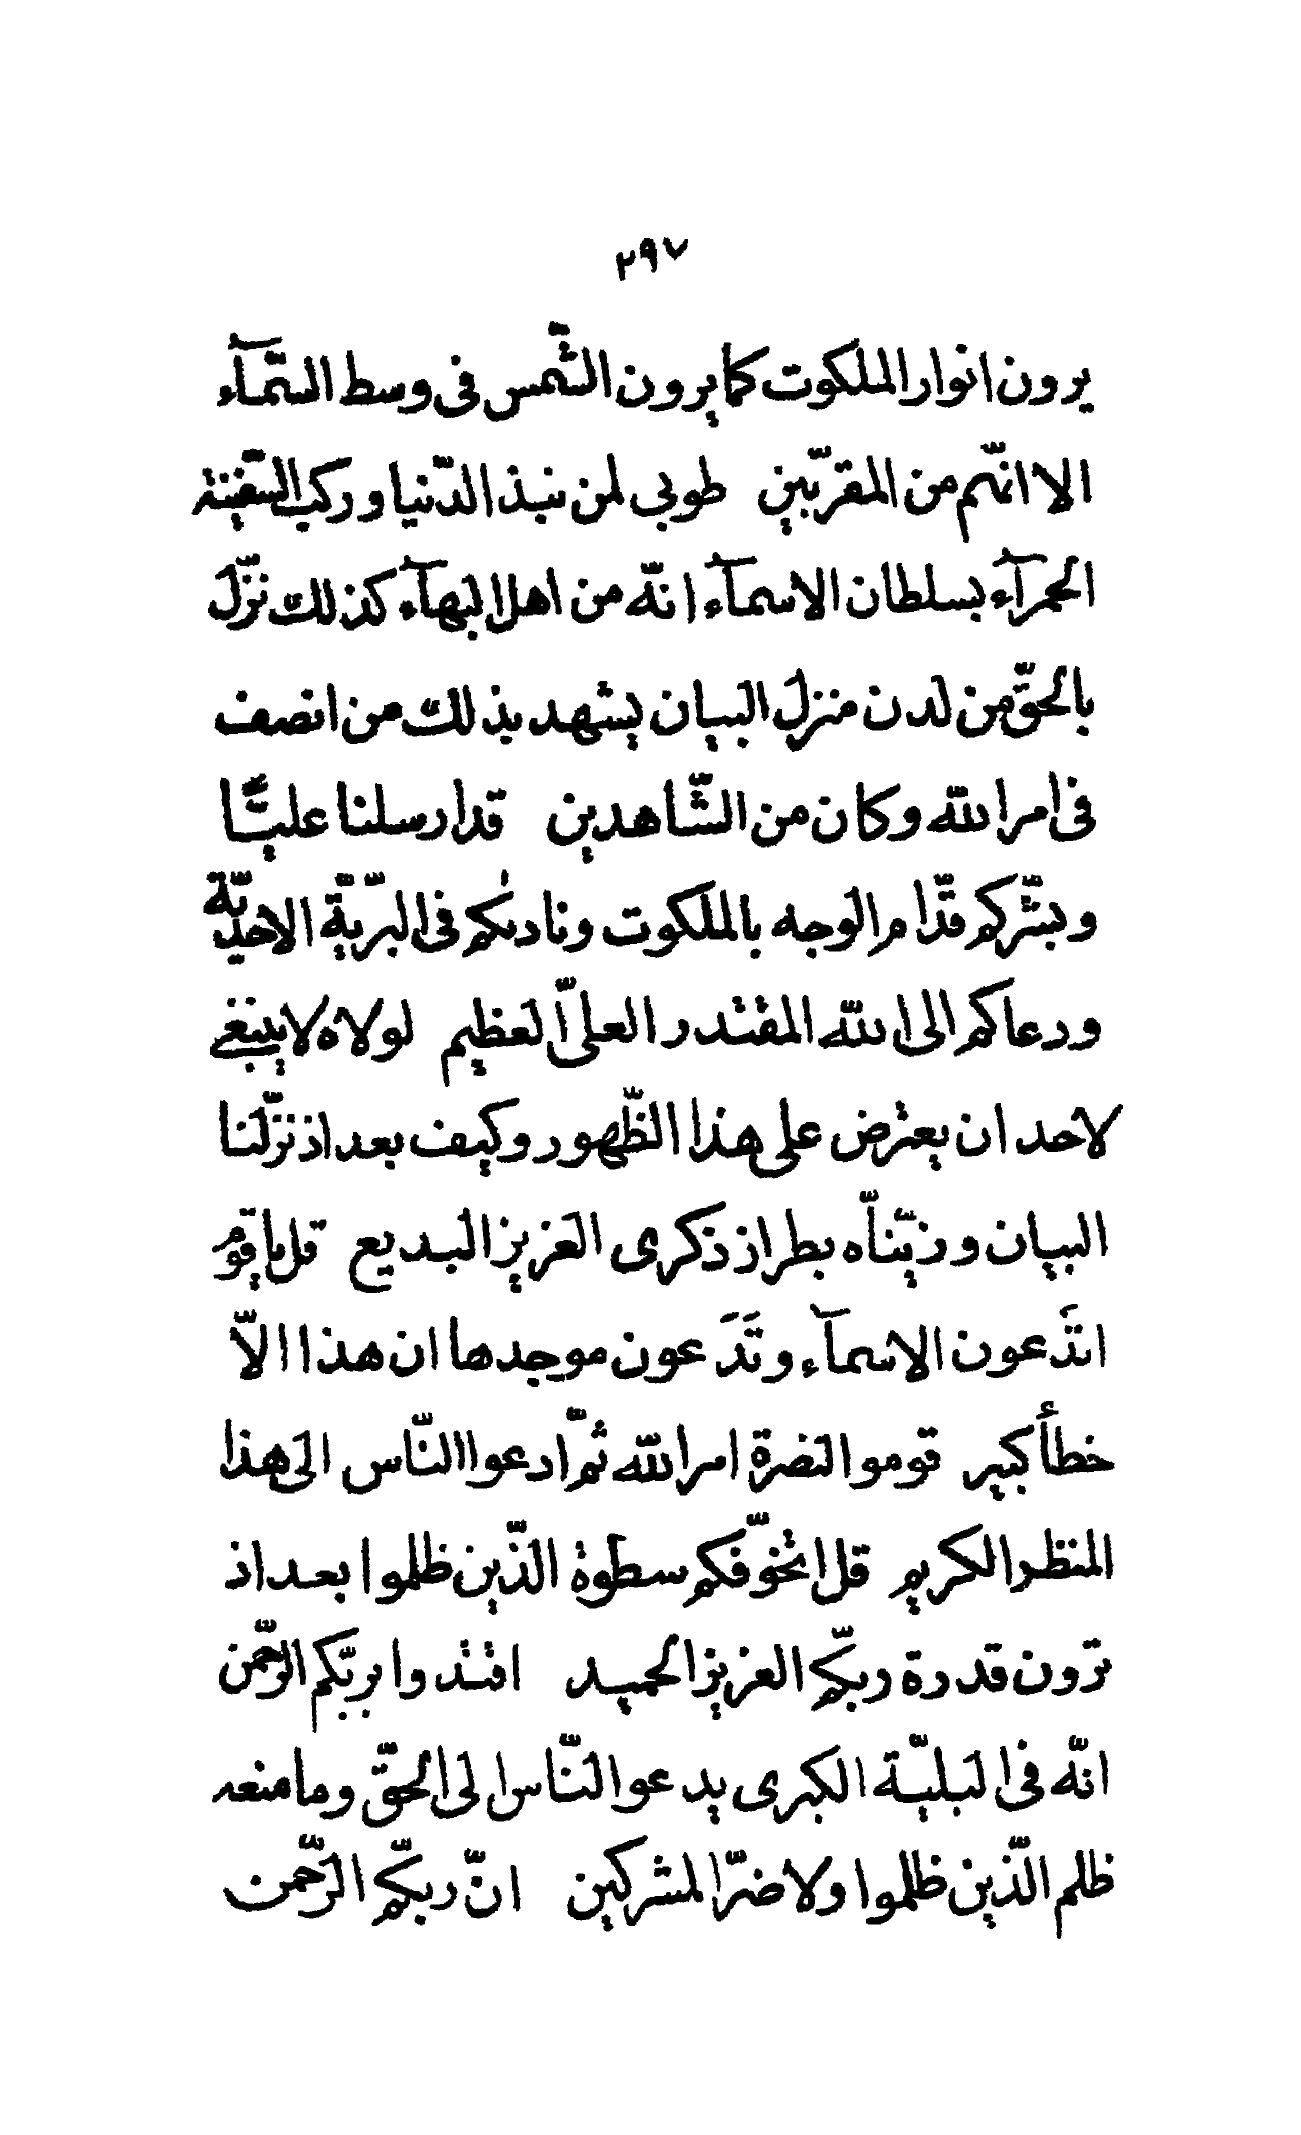 ٢٩٧
يرون انوار الملكوت كما يرون الشّمس فى وسط السّمآء
الا انّهم من المقرّبين طوبى لمن نبذ الدّنيا و ركب السّفينة
الحمرآء بسلطان الاسمآء انّه من اهل البهآء كذلك نزّل
بالحقّ من لدن منزل البيان يشهد بذلك من انصف
فى امر الله و كان من الشّاهدين قد ارسلنا عليّاً
و بشّركم قدّام الوجه بالملكوت و ناديٰكم فى البريّة الاحديّة
و دعاكم الى الله المقتدر العلىّ العظيم لولاه لا ينبغى
لاحد ان يعترض على هذا الظّهور و كيف بعد اذ نزّلنا
البيان و زيّنّاه بطراز ذكرى العزيز البديع قل يا قوم
اتَدعون الاسمآء و تَدَعون موجدها ان هذا الّا
خطأ كبير قوموا لنصرة امر الله ثمّ ادعوا النّاس الى هذا
المنظر الكريم قل اتخوّفكم سطوة الّذين ظلموا بعد اذ
ترون قدرة ربّكم العزيز الحميد اقتدوا بربّكم الرّحمن
انّه فى البليّة الكبرى يدعو النّاس الى الحقّ و ما منعه
ظلم الّذين ظلموا و لا ضرّ المشركين انّ ربّكم الرّحمن